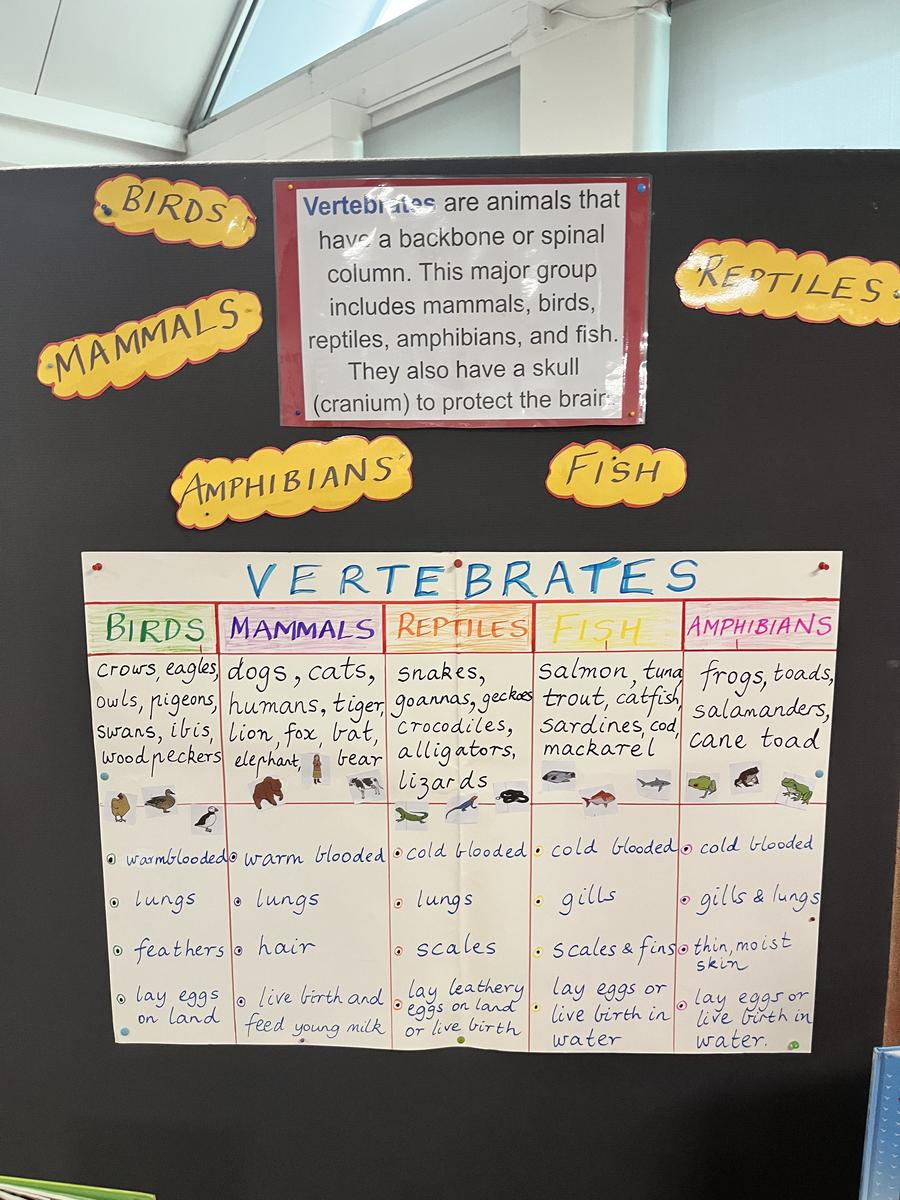 BIRDS
Vertebrates are animals that
have a backbone or spinal
column. This major group
includes mammals, birds,
reptiles, amphibians, and fish.
They also have a skull
(cranium) to protect the brain.
REPTILES
MAMMALS
AMPHIBIANS
FISH
VERTEBRATES
BIRDS
crows, eagles,
owls, pigeons,
swans, ibis,
woodpeckers
warmblooded
lungs
feathers
lay eggs
on land
MAMMALS
dogs, cats,
humans, tiger,
lion, fox bat,
elephant, bear
warm blooded
lungs
hair
live birth and
feed young milk
REPTILES
snakes,
goannas, geckoes
crocodiles,
alligators,
lizards
cold blooded
lungs
scales
lay leathery
eggs on land
or live birth
FISH
Salmon, tuna
trout, catfish,
sardines, cod,
mackarel
cold blooded
gills
scales & fins
lay eggs or
live birth in
water
AMPHIBIANS
frogs, toads,
salamanders,
cane toad
cold blooded
gills & lungs
thin, moist
skin
lay eggs or
live birth in
water.